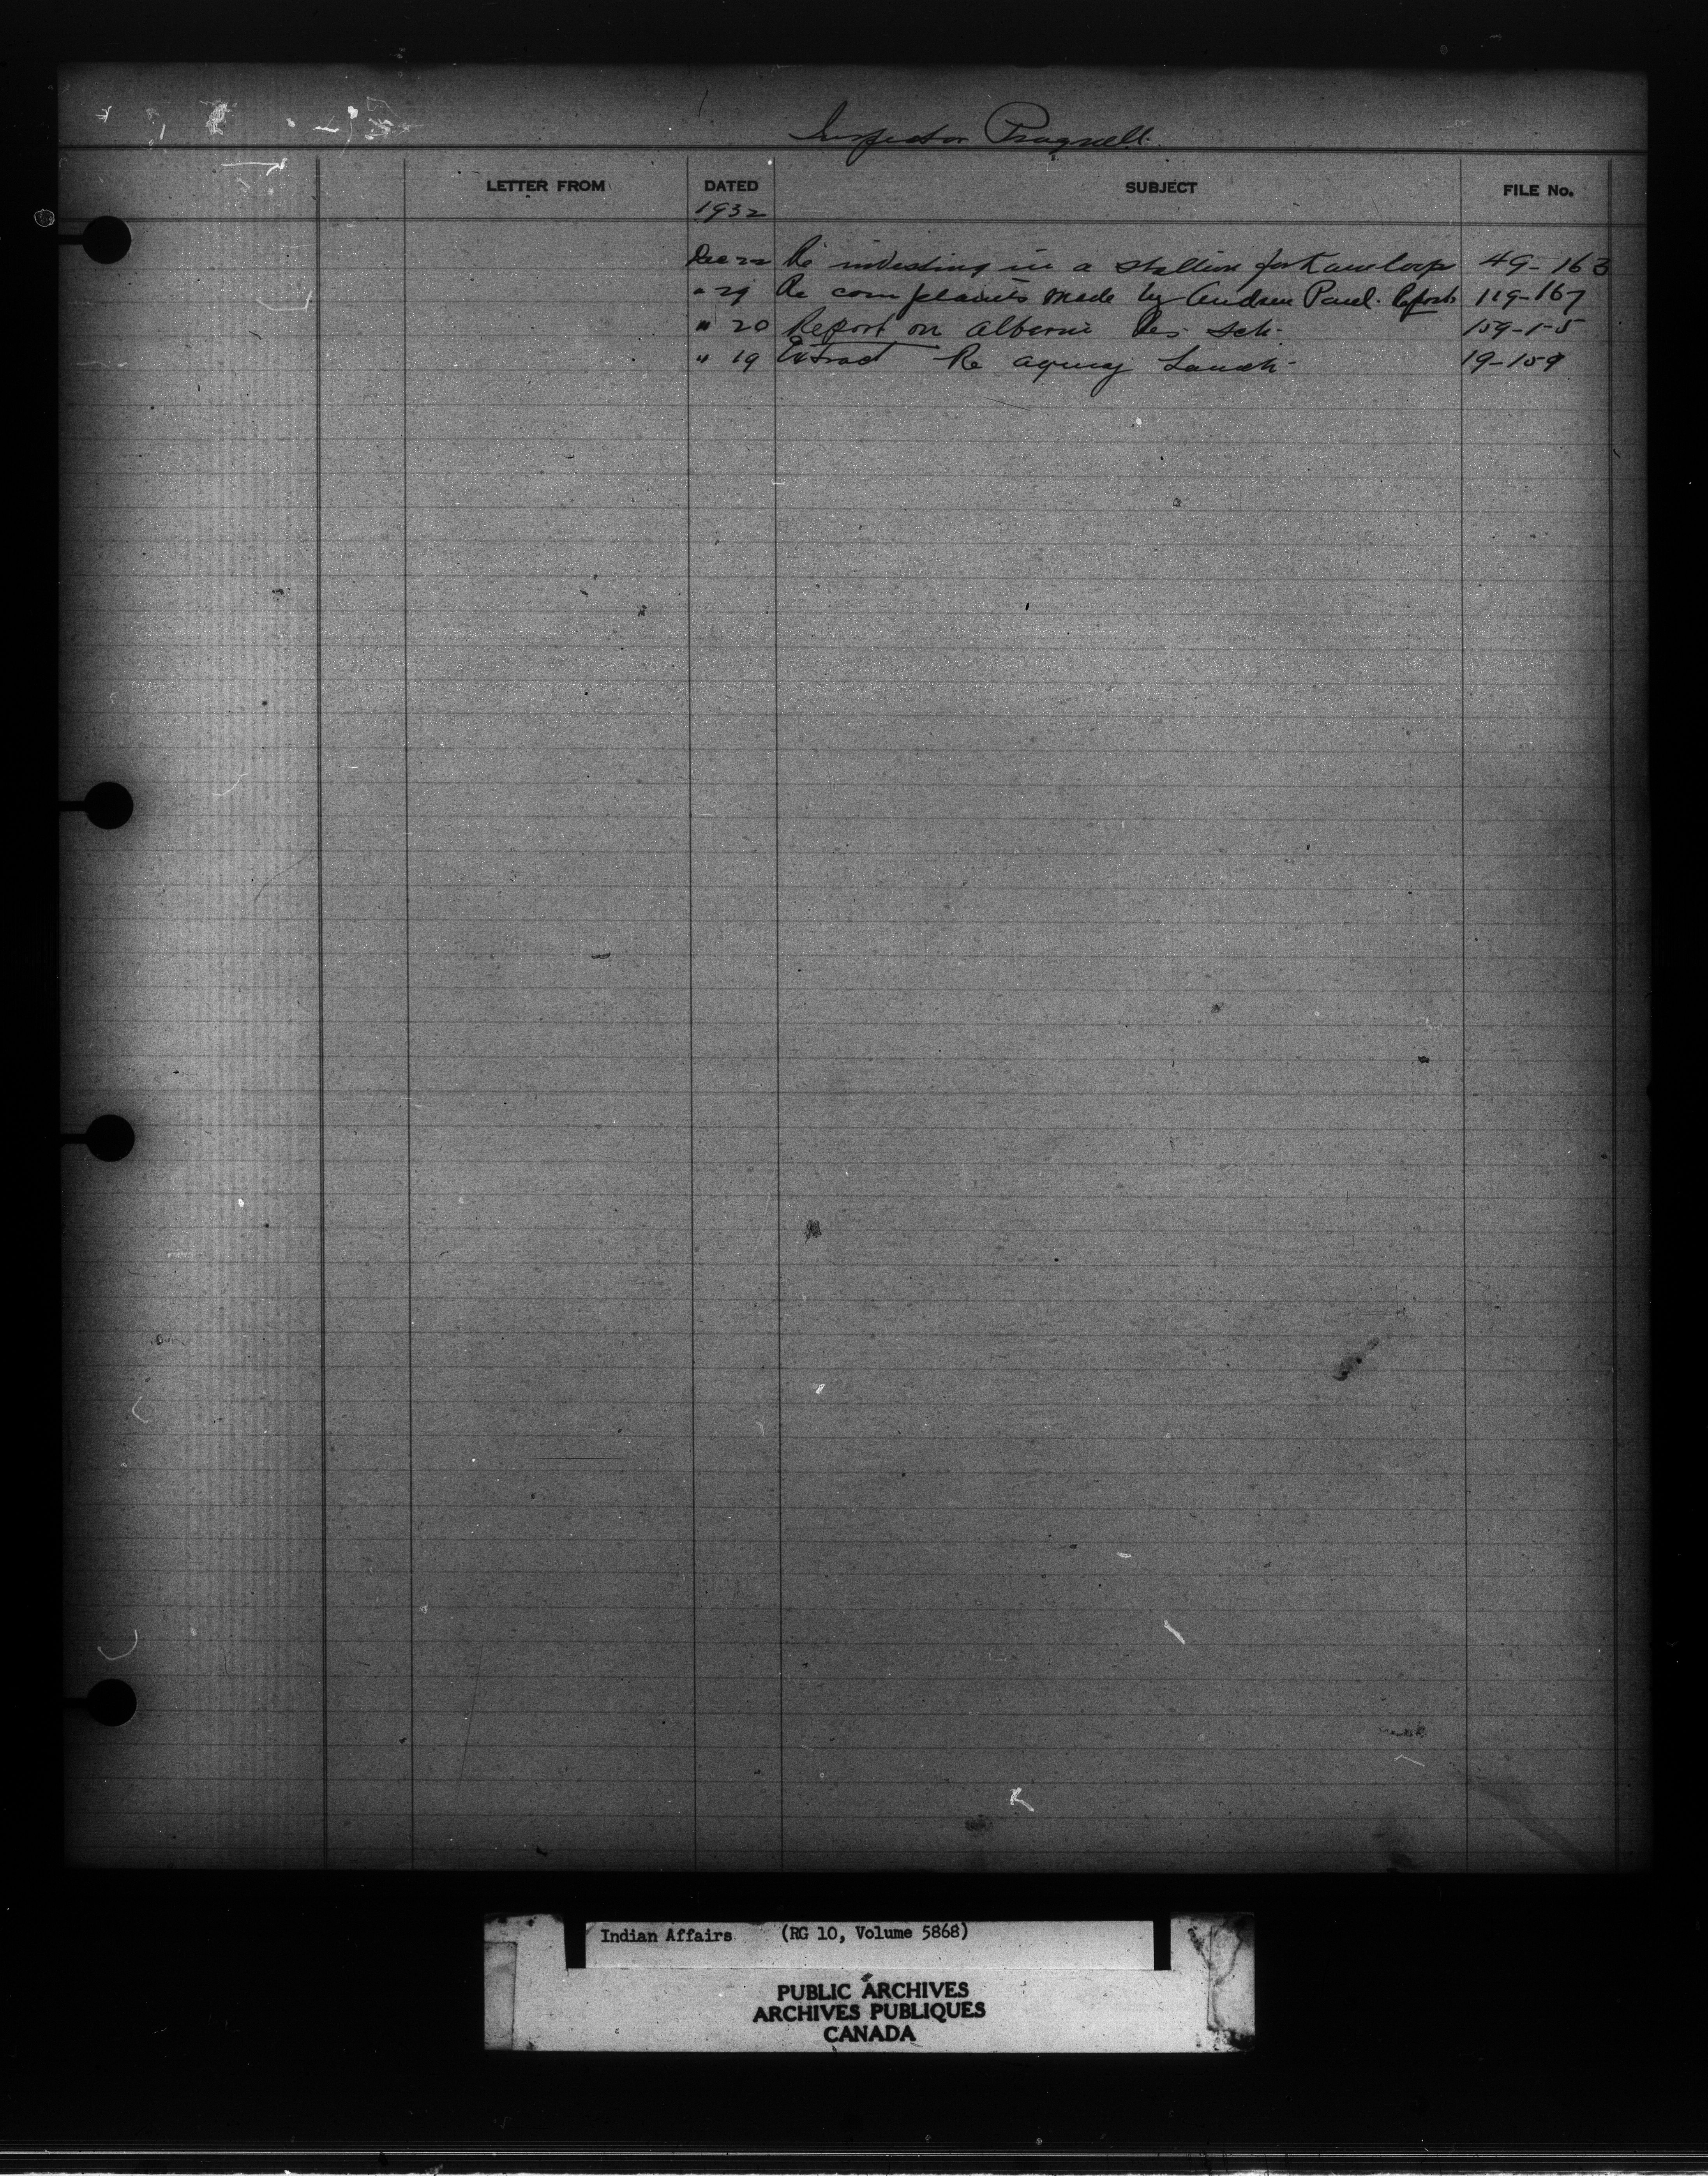 Inspector Pragnell
LETTER FROM DATED SUBJECT FILE No.
1932
Dec 22 Re investing in a stallion for Kamloops 49-163
" 29 Re complaints made by Andrew Paul. Report 119-167
" 20 Report on Alberni Res. Sch. 159-1-5
" 19 Extract Re agency Launch 19-159
Indian Affairs (RG 10, Volume 5868)
PUBLIC ARCHIVES
ARCHIVES PUBLIQUES
CANADA